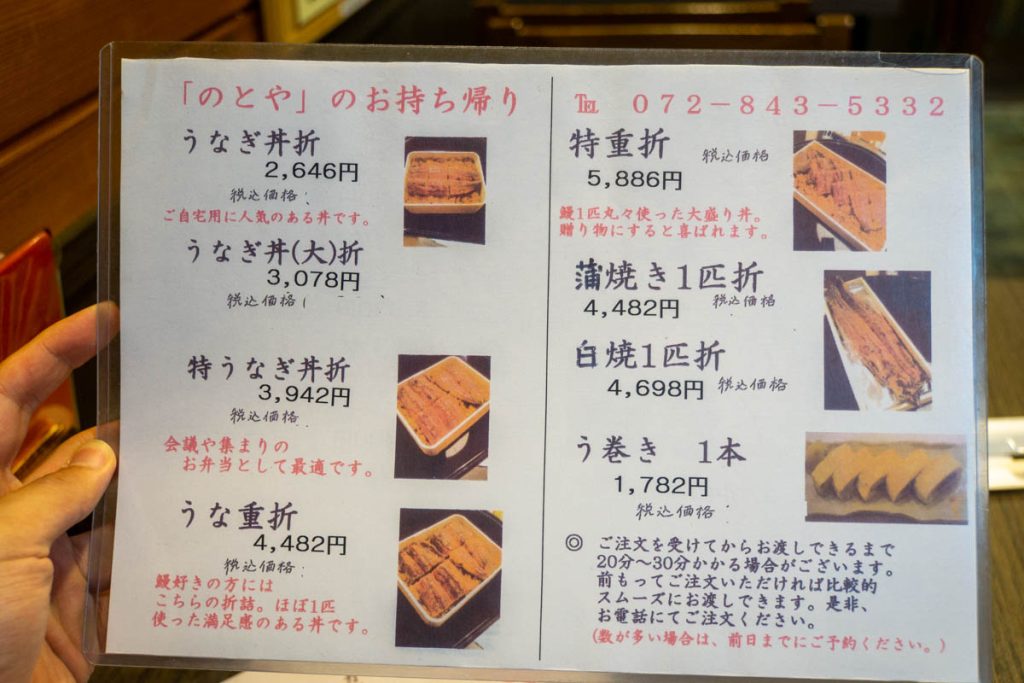 「のとや」のお持ち帰り
うなぎ丼折
2,646円
税込価格
ご自宅用に人気のある丼です。
うなぎ丼(大)折
3,078円
税込価格
特うなぎ丼折
3,942円
税込価格
会議や集まりの
お弁当として最適です。
うな重折
4,482円
税込価格
鰻好きの方には
こちらの折詰。ほぼ1匹
使った満足感のある丼です。
℡ 072-843-5332
特重折 税込価格
5,886円
鰻1匹丸々使った大盛り丼。
贈り物にすると喜ばれます。
蒲焼き1匹折
4,482円 税込価格
白焼1匹折
4,698円 税込価格
う巻き 1本
1,782円
税込価格
◎ ご注文を受けてからお渡しできるまで
20分〜30分かかる場合がございます。
前もってご注文いただければ比較的
スムーズにお渡しできます。是非、
お電話にてご注文ください。
(数が多い場合は、前日までにご予約ください。)